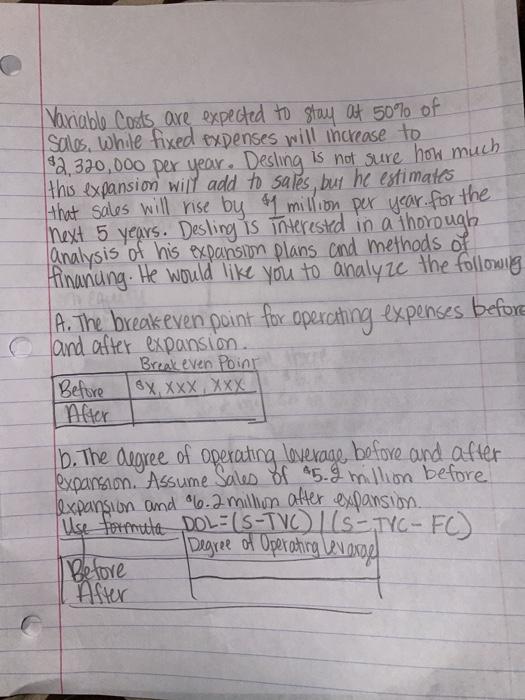 Variable Costs are expected to stay at 50% of
Sales, while fixed expenses will increase to
$2,320,000 per year. Desling is not sure how much
this expansion will add to sales, but he estimates
that sales will rise by $1 million per year for the
next 5 years. Desling is interested in a thorough
analysis of his expansion plans and methods of
financing. He would like you to analyze the following
A. The breakeven point for operating expenses before
and after expansion.
Breakeven Point
Before $X,XXX,XXX
After
b. The degree of operating leverage, before and after
expansion. Assume Sales of $5.2 million before
expansion and $6.2 million after expansion.
Use formula DOL=(S-TVC)/(S-TVC-FC)
Degree of Operating Leverage
Before
After